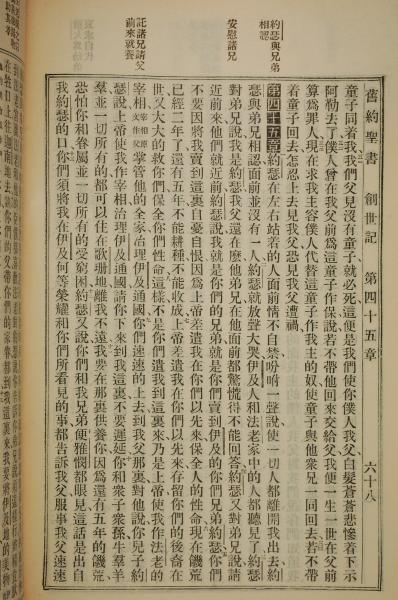 舊約聖書　創世記　第四十五章　六十八
童子同着我我們父兒沒有童子就必死這便是我們使你僕人我父白髮蒼蒼悲慘着下示
阿勒去了僕人曾在我父前爲這童子作保說若不帶他回來交給父我便一生一世在父前
算爲罪人現在求我主容僕人代替這童子作我主的奴使童子與他衆兄一同回去若不帶
着童子回去怎忍上去見我父恐見我父遭禍
約瑟與兄弟相認
第四十五章約瑟在左右站着的人面前情不自禁吩咐一聲說使一切人都離開我出去約
瑟與弟兄相認面前並沒有一人約瑟就放聲大哭伊及人和法老家中的人都聽見了約瑟
對弟兄說我是約瑟我父還在麼他弟兄在他面前都驚慌得不能回答約瑟又對弟兄說請
安慰諸兄
近前來他們就近前約瑟說我就是你們的兄弟就是你們賣到伊及的你們兄弟約瑟你們
不要因將我賣到這裏自憂自恨因爲上帝差遣我在你們以先來保全人的性命現在饑荒
已經二年了還有五年不能耕種不能收成上帝差遣我在你們以先來存留你們的後裔在
世又大大的救你們保全你們性命這樣不是你們遣我到這裏來乃是上帝使我作法老的
宰相宰相原文作父掌管他的全家治理伊及通國你們速速的上去到我父那裏對他說你兒子約
託諸兄請父前來就養
瑟說上帝使我作宰相治理伊及通國請你下來到我這裏不要遲延你和衆子衆孫牛羣羊
羣並一切所有的都可以住在歌珊地離我不遠我要在那裏供養你因爲還有五年的饑荒
恐怕你和眷屬並一切所有的受窮困約瑟又說你們和我兄弟便雅憫都眼見這話是出自
我約瑟的口你們須將我在伊及何等榮耀和你們所看見的事都告訴我父服事我父速速